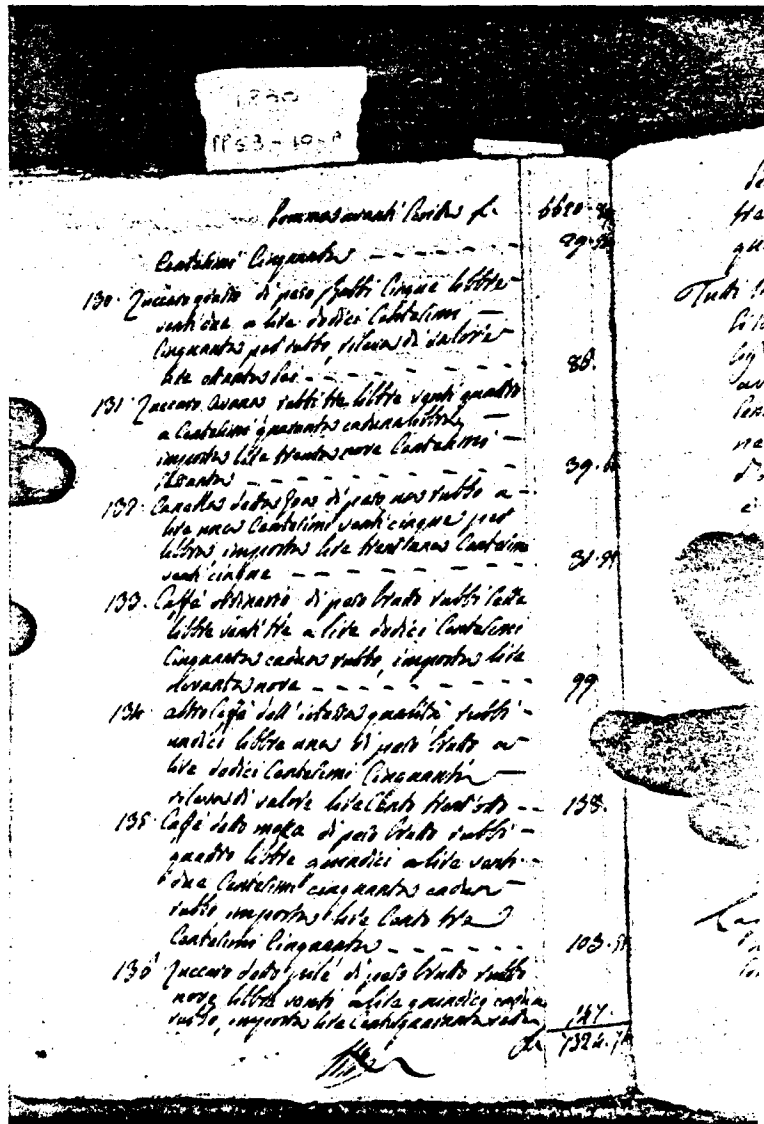 1850
Somma avanti scritta £. 6620.
Centesimi Cinquanta - - - - - - 29.50
130. Zuccaro giallo di peso Rubbi Cinque libbre
venti due a lire dodici Centesimi
Cinquanta per rubbo, rileva di valore
lire ottanta sei - - - - - - 86.
131. Zuccaro Avana rubbi tre libbre venti quattro
a Centesimi quaranta caduna libbra,
importa lire trenta nove Centesimi
- - - - - - 39.
132. Canella detta di peso un rubbo a
lire una Centesimi venti cinque per
libbra importa lire trent'una Centesimi
venti cinque - - - - - - 31.25
133. Caffé ordinario di peso brutto rubbi sette
libbre venti tre a lire dodici Centesimi
Cinquanta cadun rubbo, importa lire
novanta nove - - - - - - 99
134. altro Caffé dell'istessa qualità rubbi
undici libbre una di peso brutto a
lire dodici Centesimi Cinquanta
rileva di valore lire Cento trent'otto - - 138.
135. Caffé detto moka di peso brutto rubbi
quattro libbre quindici a lire venti
due Centesimi cinquanta cadun
rubbo, importa lire Cento tre
Centesimi Cinquanta - - - - - 103.50
136. Zuccaro detto pilé di peso brutto rubbi
nove libbre venti a lire quindici cadun
rubbo, importa lire Cento quaranta sette 147.
£. 7324.
Tutti